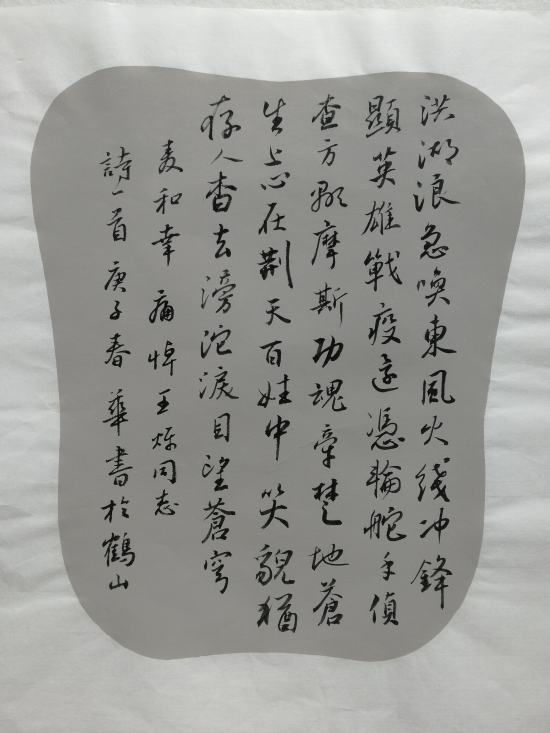 洪湖浪急喚東風火綫冲鋒
顯英雄戰疫還憑輪舵手偵
查方顯摩斯功魂牵楚地蒼
生上心在荆天百娃中笑貌猶
存人杳去滂沱淚目望蒼穹
麦和幸痛悼王烁同志
詩一首庚子春華書於鶴山